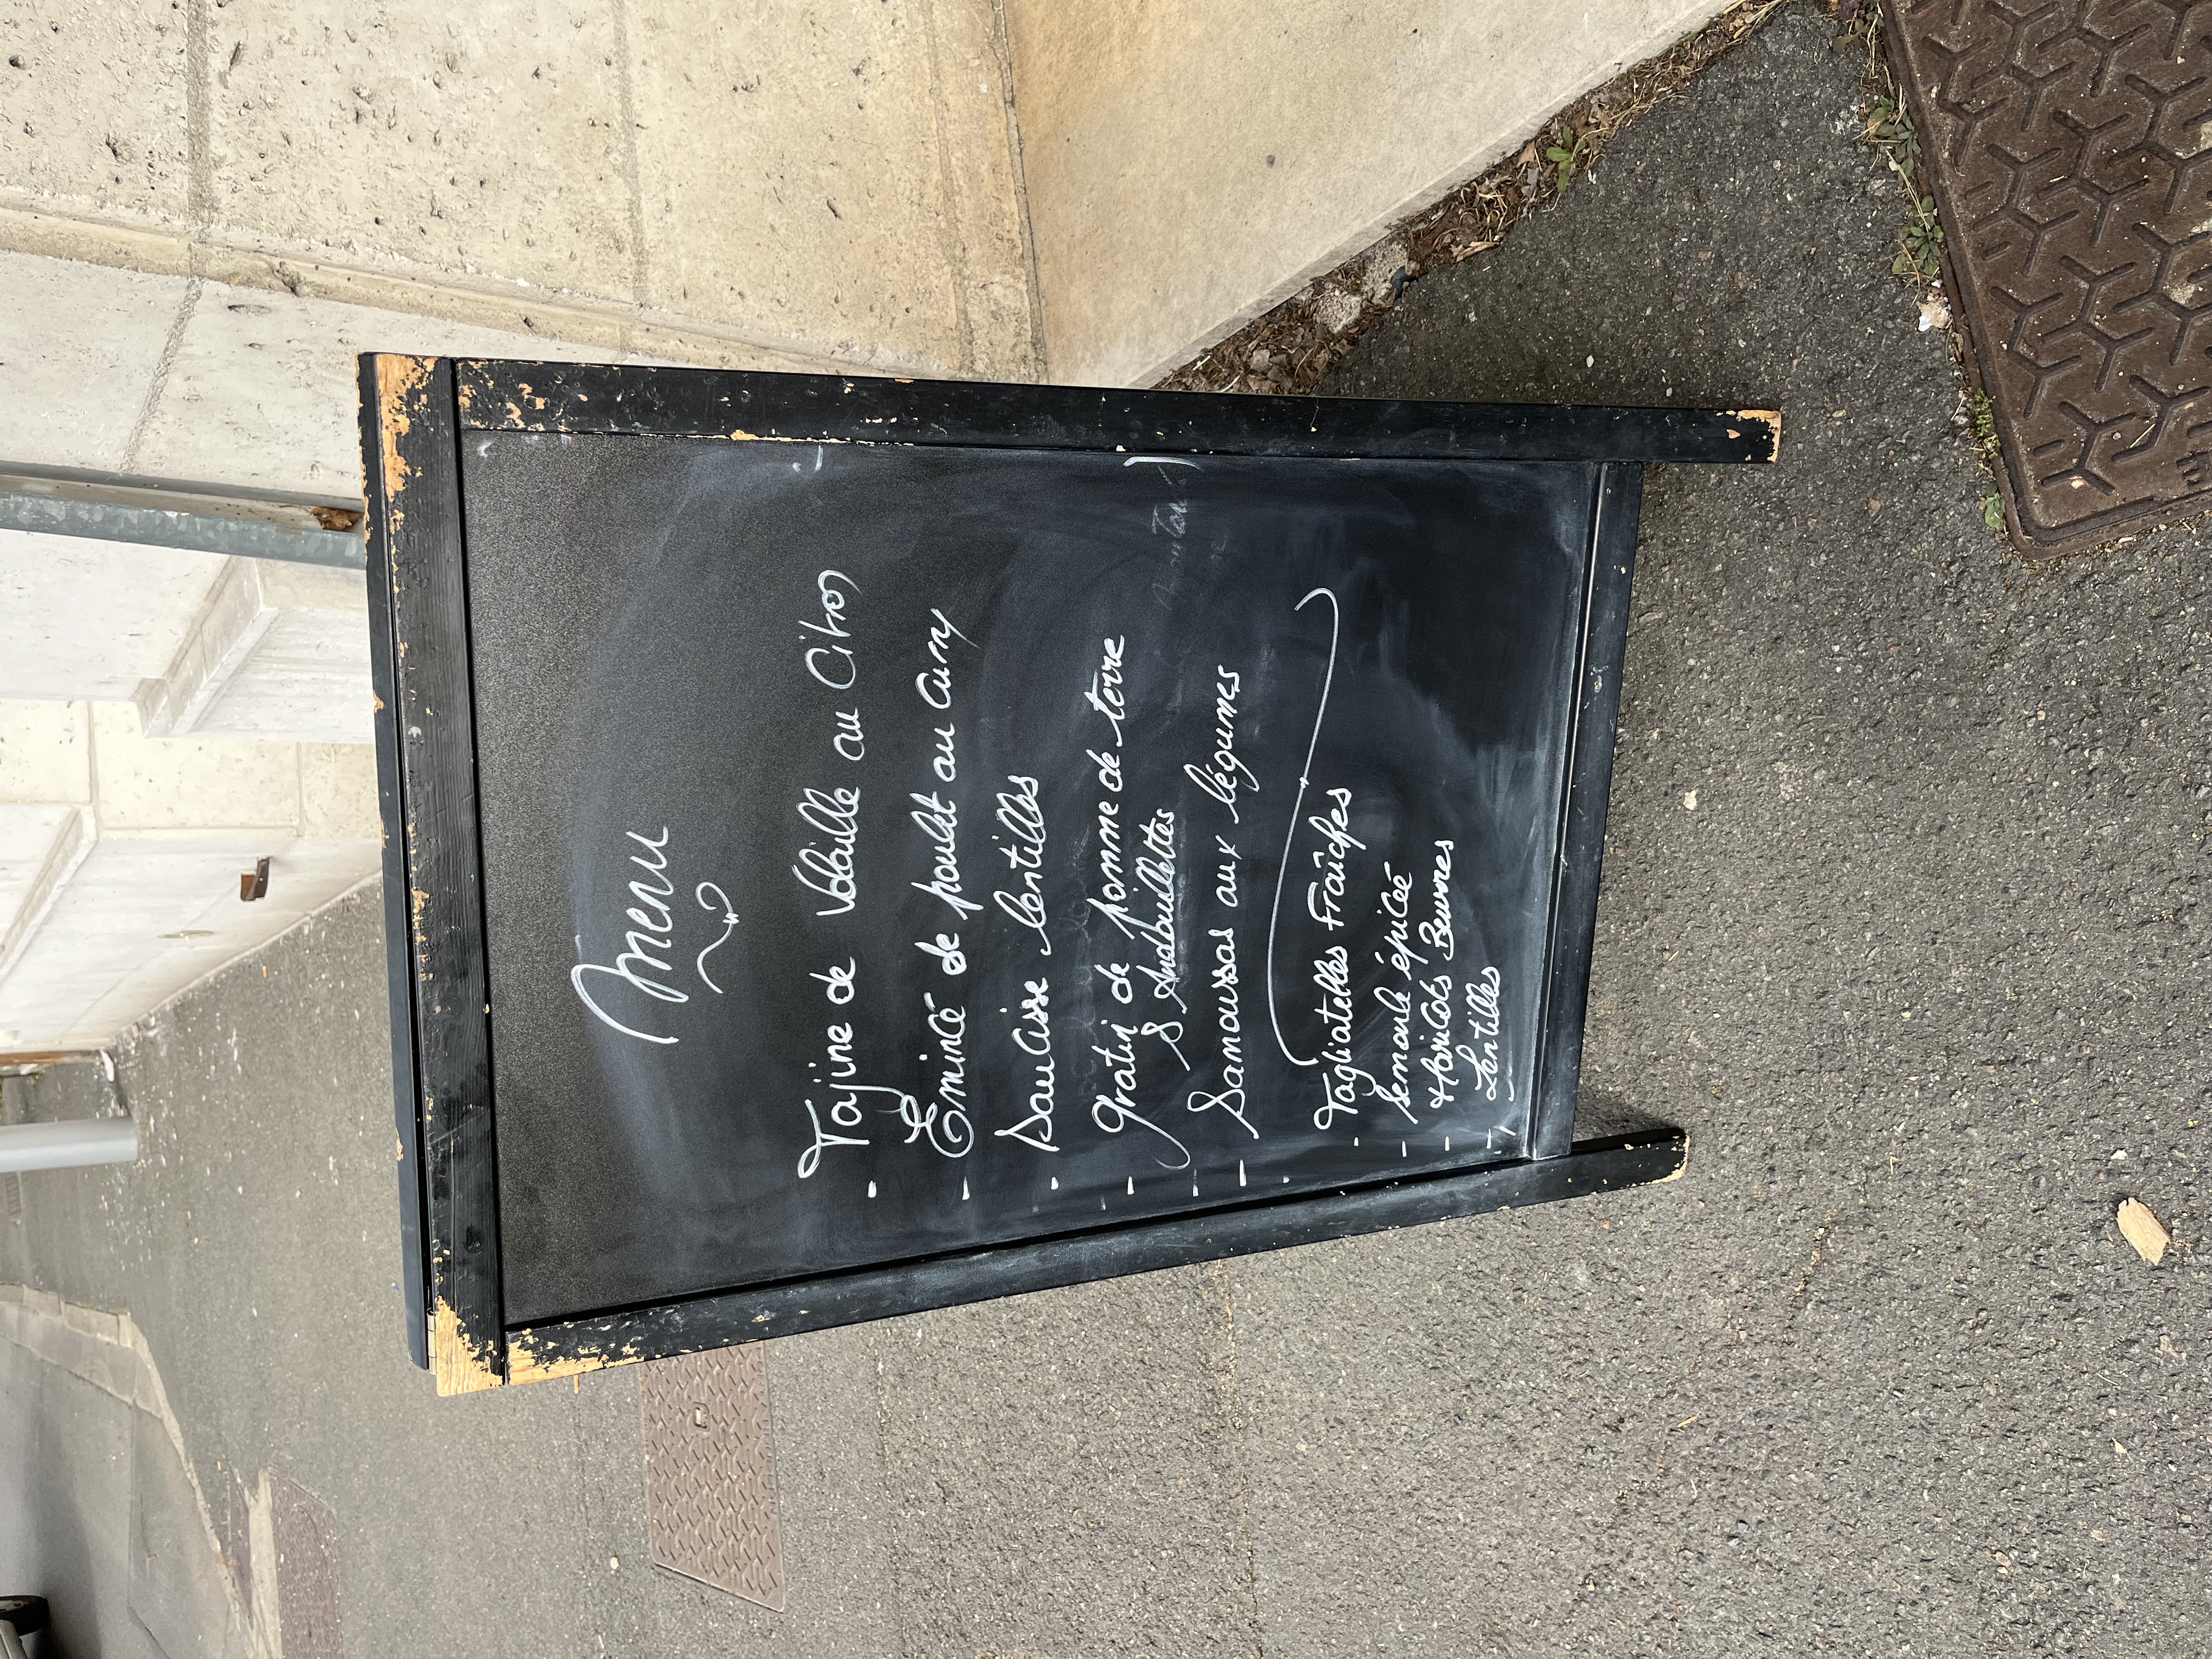 Menu
- Tajine de Volaille au Citron
- Emincé de poulet au curry
- Saucisse lentilles
- gratin de pomme de terre
& Andouillettes
- Samoussas aux légumes
- Tagliatelles Fraîches
- Semoule épicée
- Haricots Beurres
- Lentilles